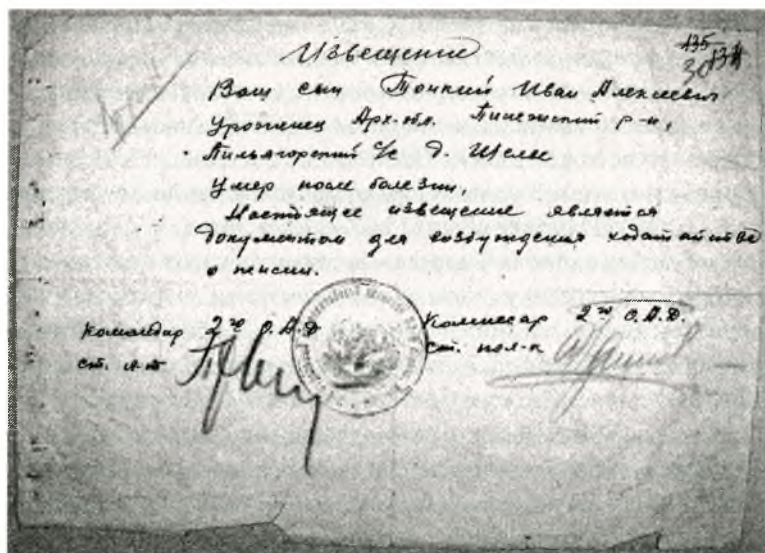 Извещение
135
30 134
Ваш сын Тонкий Иван Алексеевич
уроженец Арх. обл. Пинежский р-н
Пильегорский с/с д. Щелье
умер после болезни.
Настоящее извещение является
документом для возбуждения ходатайства
о пенсии.
Командир 2го О.А.Д Комиссар 2го О.А.Д.
ст. л-т ст. пол-к